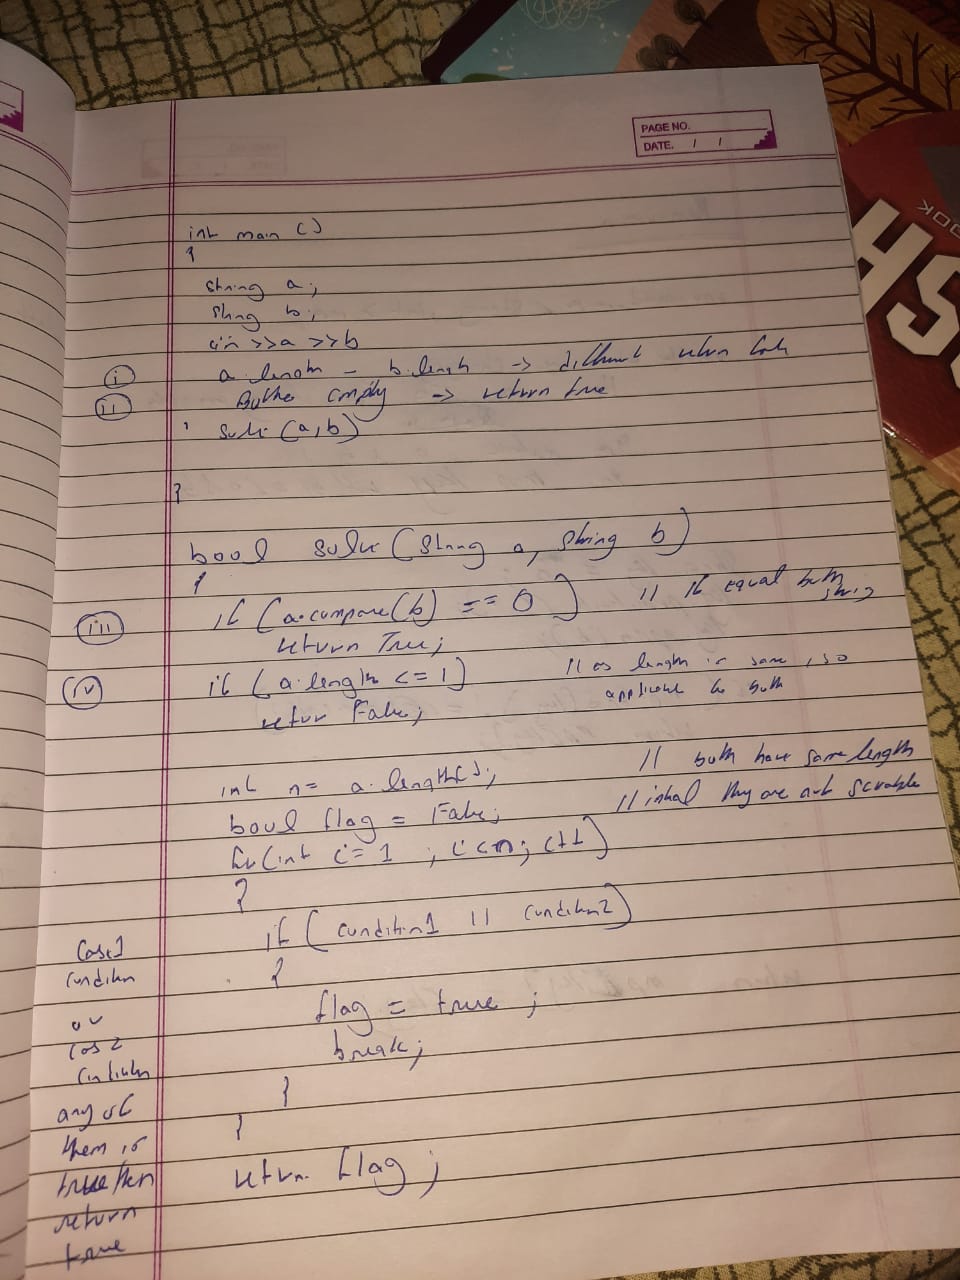 PAGE NO.
DATE. / /
int main ()
{
string a;
string b;
cin >>a >>b
i a. length - b. length -> different return
ii empty -> return true
solve (a,b)
}
bool solve (string a, string b)
{
iii if (a.compare(b) == 0) // If equal both string
return True;
iv if (a.length <= 1) // as length is same, so
applicable to both
return False;
int n= a.length(); // both have same length
bool flag = False; // they are not scrable
for(int i=1 ; i<n; i++)
{
if (condition1 || condition2)
{
flag = true ;
break;
}
}
return flag ;
Case1
condition
or
condition
any of
them is
true then
return
true
BOOK
SH